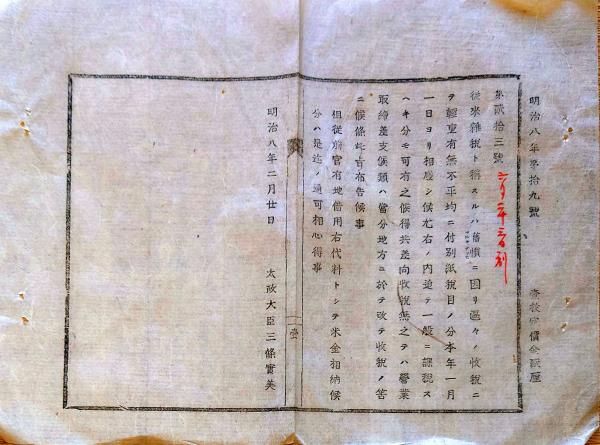 明治八年第拾九號
壹枚定價金貳厘
第貳拾三號
從來雜税ト稱スルハ舊慣ニ因リ區々ノ收税ニ
テ輕重有無不平均ニ付別紙税目ノ分本年一月
一日ヨリ相廢シ候尤右ノ内追テ一般ニ課税ス
ヘキ分モ可有之候得共差向收税無之テハ營業
取締差支候類ハ當分地方ニ於テ改テ收税ノ筈
ニ候條此旨布告候事
但從前官有地借用右代料トシテ米金相納候
分ハ是迄ノ通可相心得事
壹
明治八年二月廿日
太政大臣三條實美